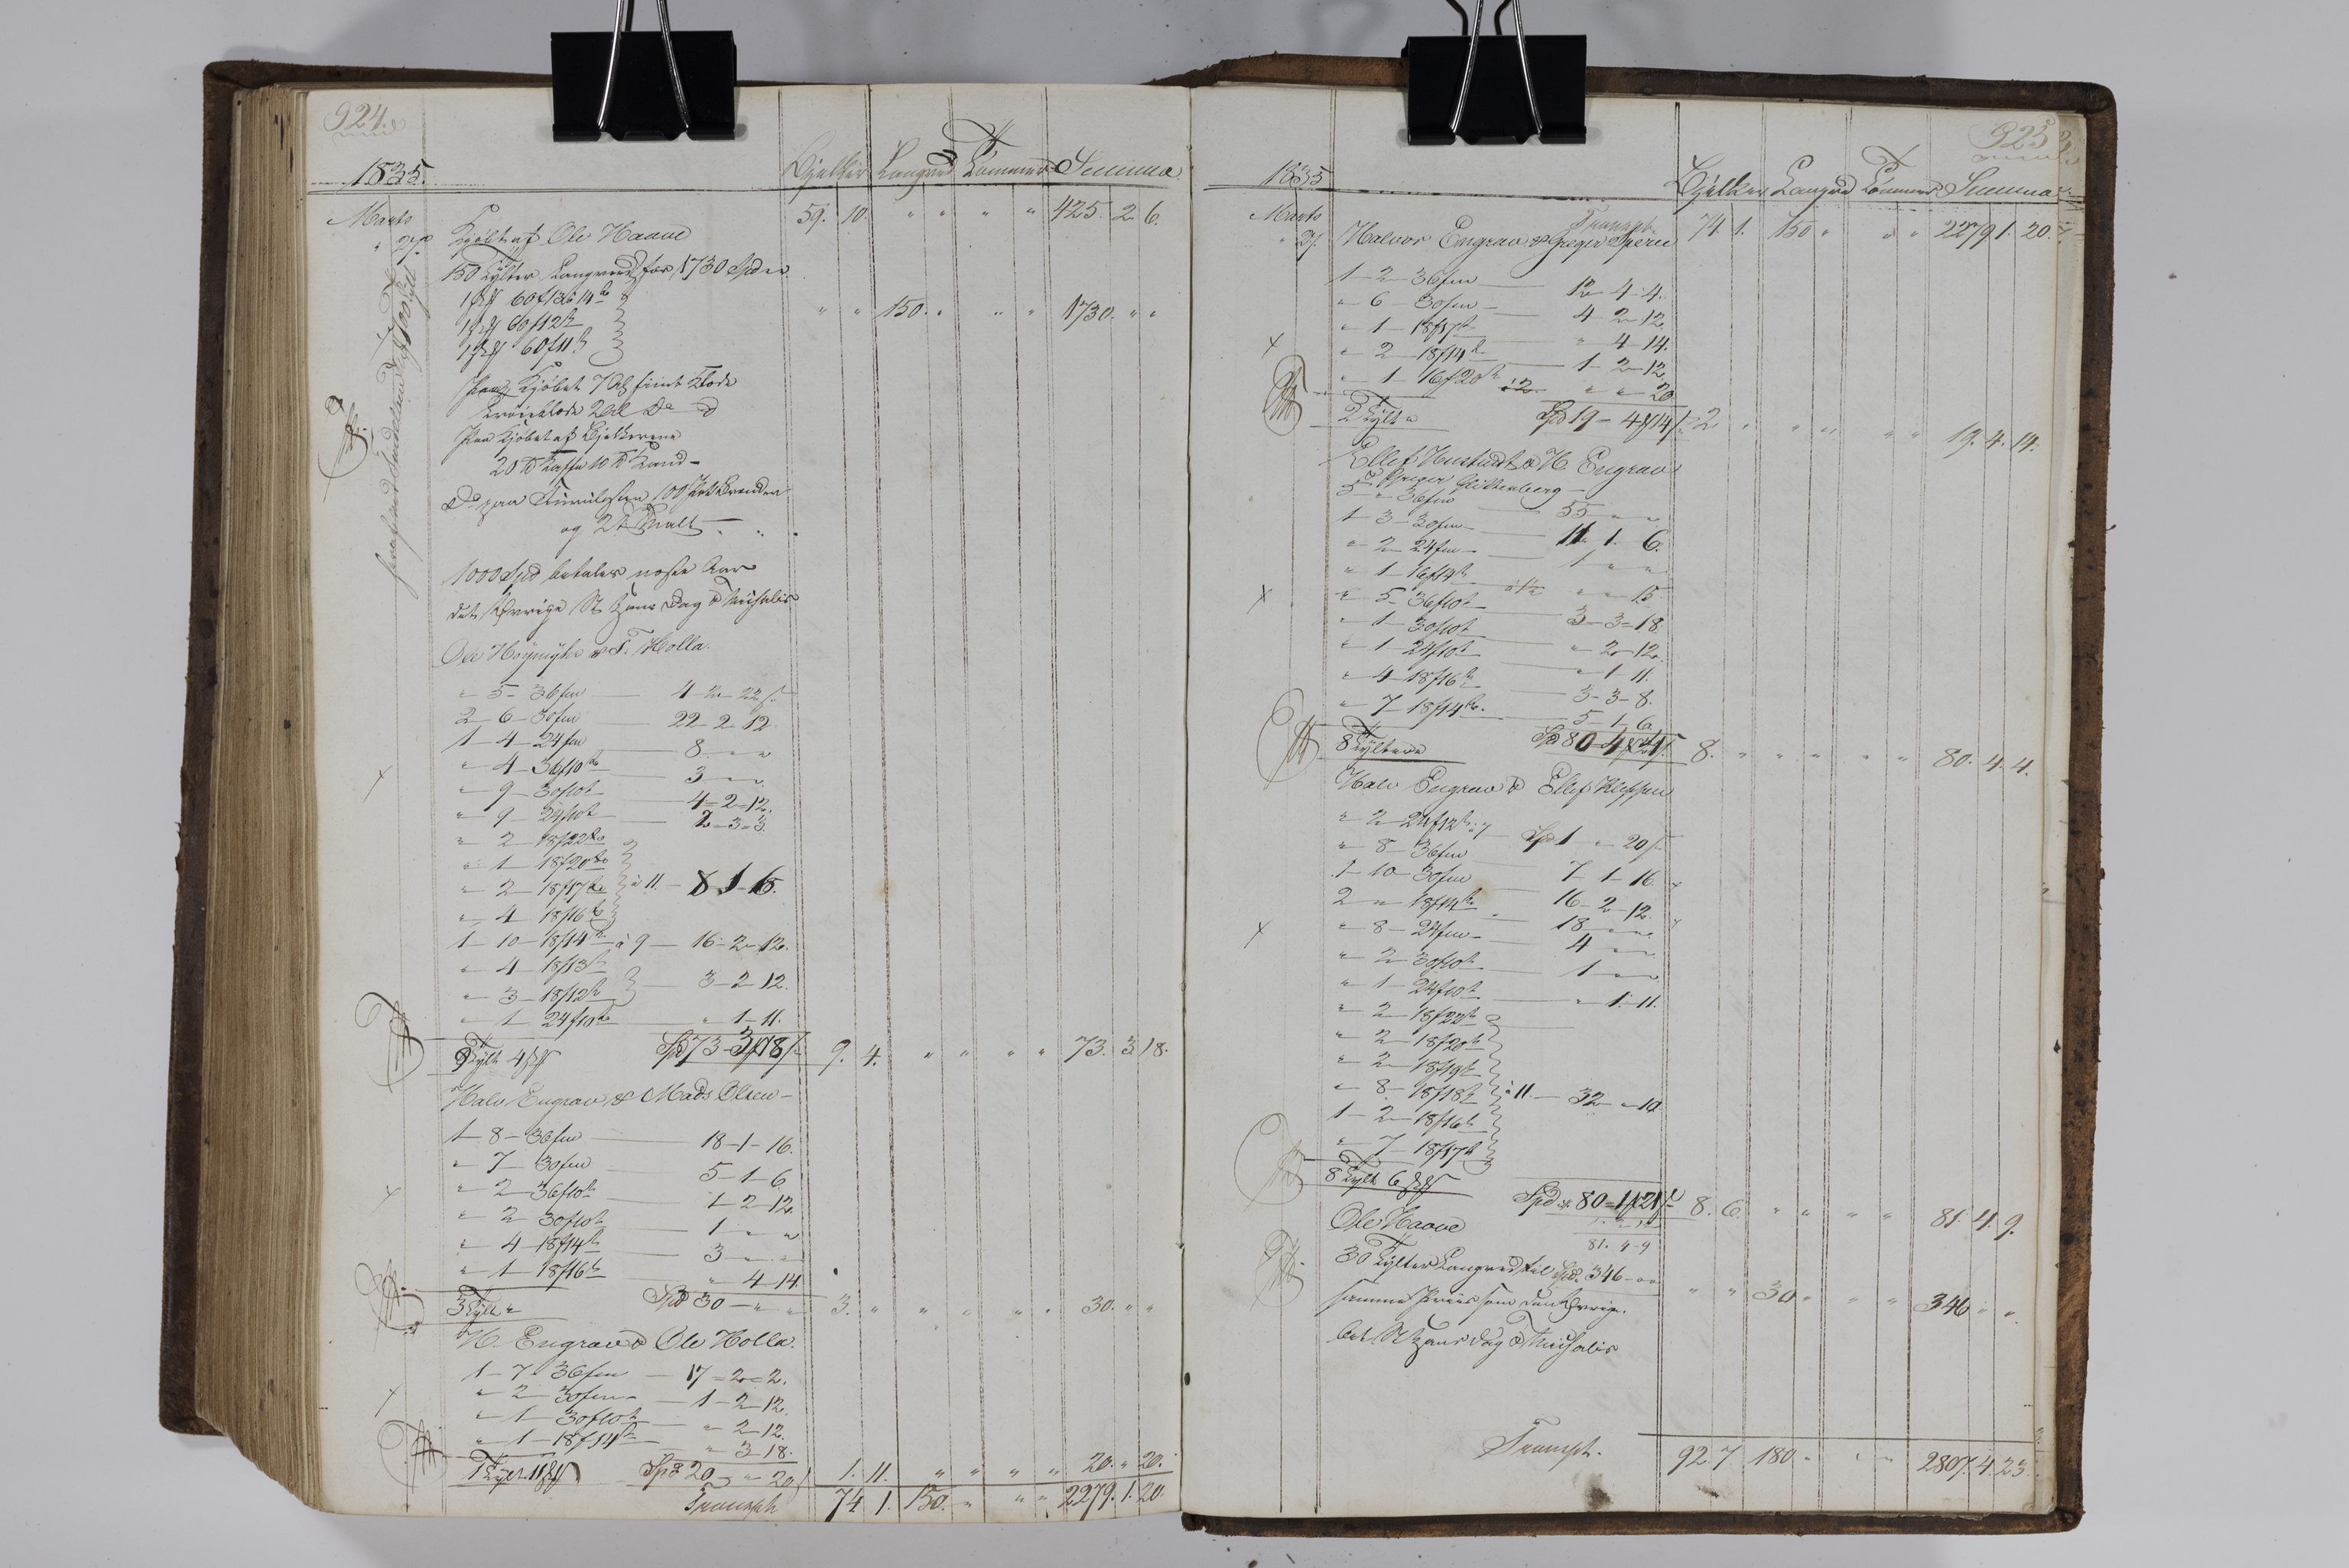 924.
1835.
Bjelker Langved Tømmer Summa
Marts
59. 10. " " " " 425. 2. 6.
" 27. Kjøbt af Ole Haave
150 Tylter Langved for 1730 Spd
60 f 12 t
60 f 11 t
" " 150. " " " 1730. " "
Paa Kjøbet 7 Al fiint Klæde
2 Al
Paa Kjøbet af Bjelkerne
20 Kaffe 10 Kand
og 2 t Malt
1000 Spd betales næste Aar
det Øvrige St Hans Dag & Michalis
Ole Høymyhr & T. Holla.
" 5 - 36 fm — 4 - 2 - 22 s
2 - 6 - 30 fm — 22 - 2 - 12.
1 - 4 - 24 fm — 8 " "
" 4 - 36 f 10 t — 3 " "
" 9 - 30 f 10 t — 4 - 2 - 12.
" 9 - 24 f 10 t — 2 - 3 - 3.
" 2 - 18 f 22 t
" 1 - 18 f 20 t
" 2 - 18 f 17 t à 11. — 8 - 1 - 6.
" 4 - 18 f 16 t
1 - 10 - 18 f 14 t à 9 — 16 - 2 - 12.
" 4 - 18 f 13 t
" 3 - 18 f 12 t — 3 - 2 - 12.
" 1 - 24 f 10 t — " 1 - 11.
9 Tylt 4 Spd 73 - 3 18 s 9. 4. " " " " 73. 3. 18.
Halv Engrav & Mads Olsen
1 - 8 - 36 fm — 18 - 1 - 16.
" 7 - 30 fm — 5 - 1 - 6
" 2 - 36 f 10 t — 1 - 2 - 12.
" 2 - 30 f 10 t — 1 " "
" 4 - 18 f 14 t — 3 " "
" 1 - 18 f 16 t — " 4 - 14
3 Tylt " Spd 30 — " " 3. " " " " " 30. " "
H. Engrav & Ole Holla.
1 - 7 - 36 fm — 17 - 2 - 2.
" 2 - 30 fm — 1 - 2 - 12.
" 1 - 30 f 10 t — " 2 - 12.
" 1 - 18 f 14 t — " 3 - 18.
1 Tylt 11 Spd 20 " 20 1. 11. " " " " 20. " 20.
Transpt 74 1. 150. " " " 2279. 1. 20.
925
1835
Bjelker Langved Tømmer Summa
Marts Transpt. 74. 1. 150 " " " 2279. 1. 20.
" 27. Halvor Engrav & Greger
1 - 2 - 36 fm — 12 - 4 - 4.
" 6 - 30 fm — 4 - 2 - 12.
" 1 - 18 f 17 t — " 4 - 14.
" 2 - 18 f 14 t — 1 - 2 - 12.
" 1 - 16 f 20 t " " 20
2 Tylt " Spd 19 - 4 14 s 2 " " " " " 19. 4. 14.
Ellef & H. Engrav
5 - " 36 fm — 55 " "
1 - 3 - 30 fm — 11 - 1 - 6.
" 2 - 24 fm — 1 " "
" 1 - 16 f 14 t — " " 15
" 5 - 36 f 10 t — 3 - 3 - 18
" 1 - 30 f 10 t — " 2 - 12.
" 1 - 24 f 10 t — " 1 - 11.
" 4 - 18 f 16 t — 3 - 3 - 8.
" 7 - 18 f 14 t — 5 - 1 - 6
8 Tylter Spd 80 - 4 4 s 8. " " " " " 80. 4. 4.
Halv Engrav & Ellef Kleppen
" 2 - 24 f 12 t — Spd 1 " 20 s
" 8 - 36 fm — 7 - 1 - 16.
1 - 10 - 30 fm — 16 - 2 - 12.
2 - " 18 f 14 t — 18 " "
" 8 - 24 fm — 4 " "
" 2 - 30 f 10 t — 1 " "
" 1 - 24 f 10 t — " 1 - 11.
" 2 - 18 f 22 t
" 2 - 18 f 20 t
" 2 - 18 f 19 t
" 8 - 18 f 18 t à 11. — 32 - " 10
1 - 2 - 18 f 16 t
" 7 - 18 f 17 t
8 Tylt 6 Spd 80 - 1 21 s 8. 6. " " " " 81. 4. 9.
81. 4 - 9
Ole Haave
30 Tylter Langved til Spd 346 - " " " " 30 " " " 346 " "
samme Priis som den Øvrige.
bet. St Hans dag & Michalis
Transpt. 92 7 180 " " " 2807. 4. 23.